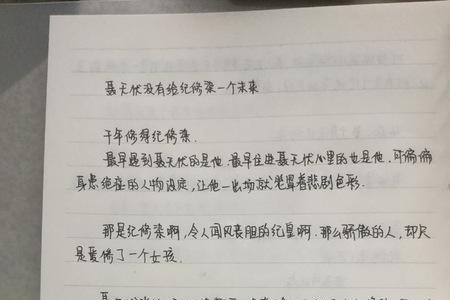 聂无伏没有给纪修染一个未来
千年修得纪修染.
最早遇到聂无伏的是他.最早住进聂无伏心里的也是他.可偏偏
身患绝症的人物设定,让他一出场就笼罩着悲剧色彩.
那是纪修染啊,令人闻风丧胆的纪皇啊.那么骄傲的人,却只
是爱惨了一个女孩.